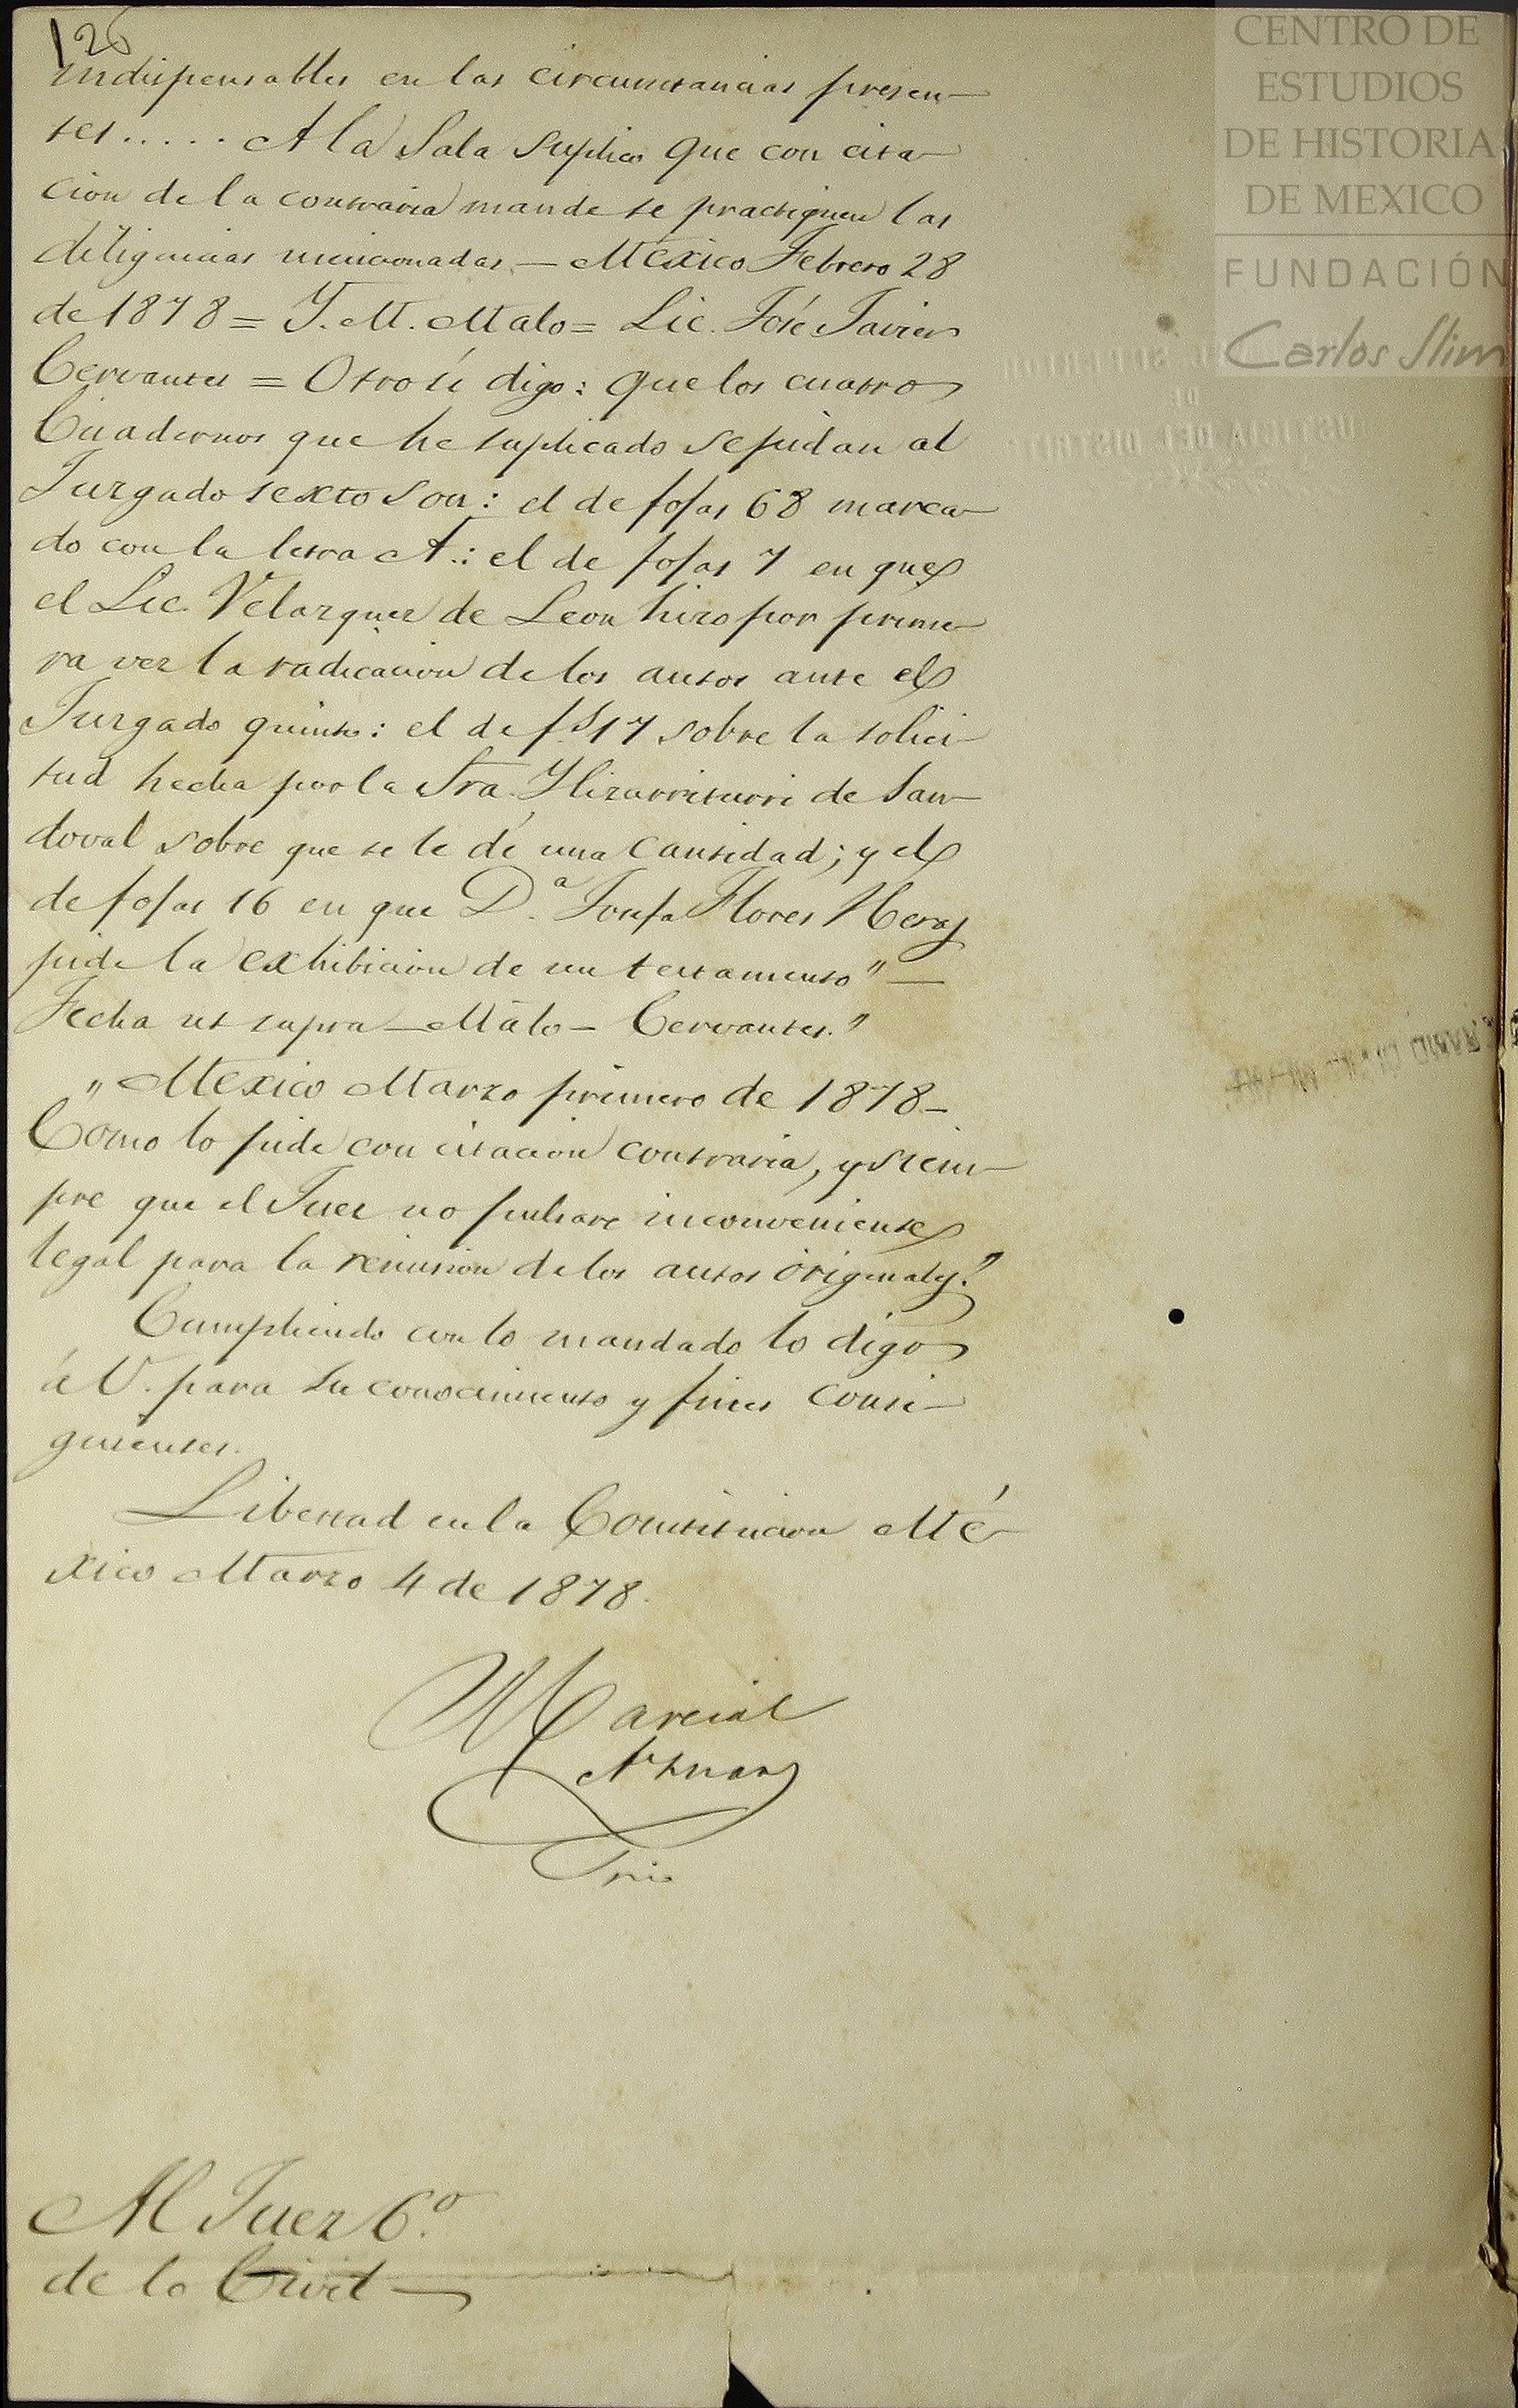 126
CENTRO DE
ESTUDIOS
DE HISTORIA
DE MEXICO
FUNDACIÓN
Carlos Slim
indispensables en las circunstancias presen-
tes..... A la Sala suplico que con cita-
cion de la contraria mande se practiquen las
diligencias mencionadas.— México Febrero 28
de 1878 = Y. M. Malo = Lic. José Javier
Cervantes = Otro sí digo: que los cuatro
Cuadernos que he suplicado se pidan al
Juzgado sexto son: el de fojas 68 marca-
do con la letra A.: el de fojas 7 en que
el Lic. Velazquez de Leon hizo por prime-
ra vez la radicacion de los autos ante el
Juzgado quinto: el de fs 17 sobre la solici-
tud hecha por la Sra. Ylizarriturri de San-
doval sobre que se le dé una cantidad; y el
de fojas 16 en que D.a Josefa Flores Heras
pide la exhibicion de un testamento"—
Fecha ut supra — Malo — Cervantes."
"Mexico Marzo primero de 1878—
Como lo pide con citacion contraria, y siem-
pre que el Juez no pulsare inconveniente
legal para la remision de los autos originales."
Cumpliendo con lo mandado lo digo
á V. para su conocimiento y fines consi-
guientes.
Libertad en la Constitucion Mé-
xico Marzo 4 de 1878.
Marcial
Aznar
Srio
Al Juez 6.o
de lo Civil